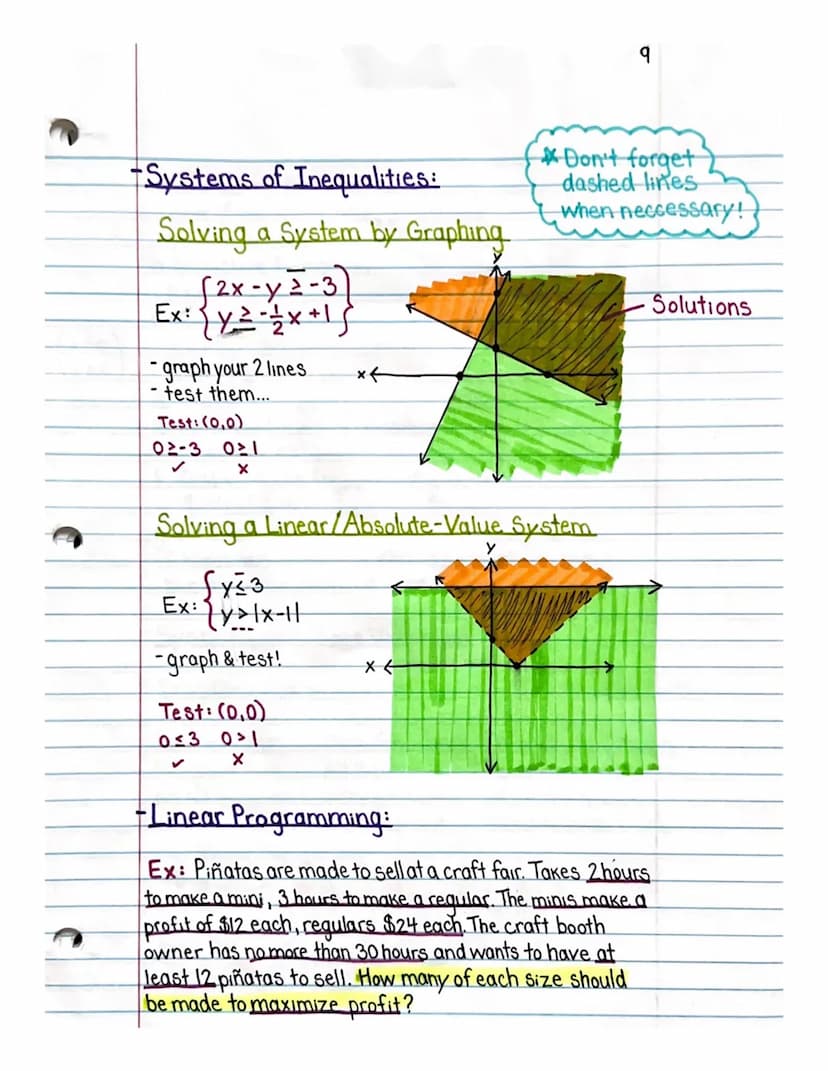 9
* Don't forget
dashed lines
when neccessary!
-Systems of Inequalities:
Solving a System by Graphing
Ex: {2x-y ≥ -3
y ≥ -1/2x+1}
y
Solutions
x
- graph your 2 lines
- test them...
Test: (0,0)
0≥-3 0≥1
✓ x
Solving a Linear/Absolute-Value System
y
Ex: {y≤3
y>|x-1|
-graph & test!
x
Test: (0,0)
0≤3 0>1
✓ x
-Linear Programming:
Ex: Piñatas are made to sell at a craft fair. Takes 2 hours
to make a mini, 3 hours to make a regular. The minis make a
profit of $12 each, regulars $24 each. The craft booth
owner has no more than 30 hours and wants to have at
least 12 piñatas to sell. How many of each size should
be made to maximize profit?